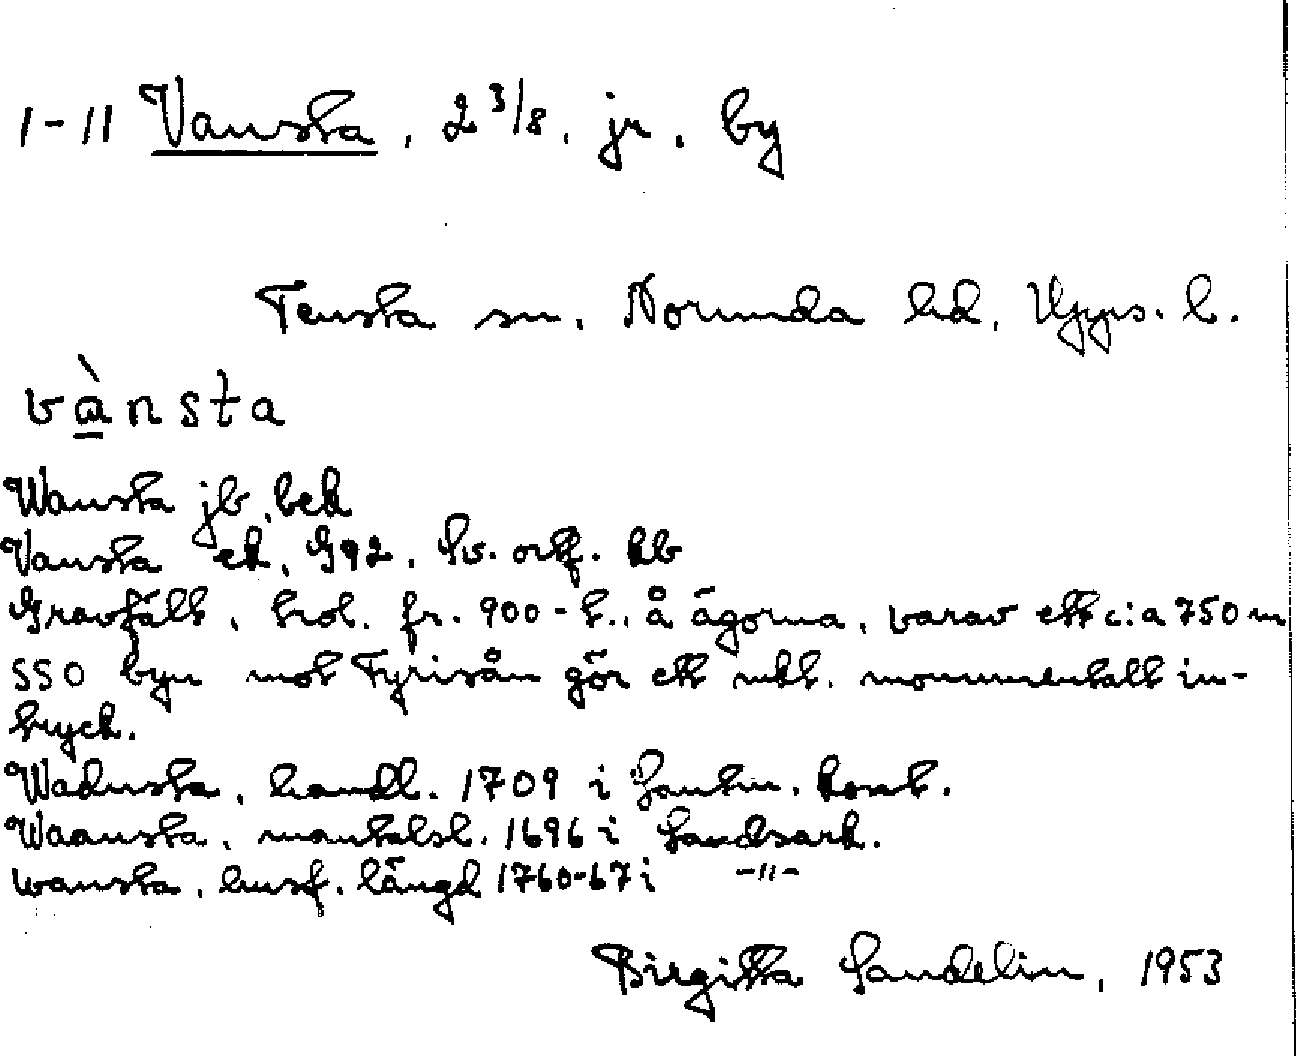 1-11 Vansta, 2 3/8, jr. by
Tensta sn. Norunda hd, Upps. l.
vànsta
Wansta jb, bek
Vansta ek, G92, Sv. ortf. kb
Gravfält, trol. fr. 900-t., å ägorna, varav ett c:a 750 m
SSO byn mot Fyrisån gör ett mkt. monumentalt in-
tryck.
Wadnsta, handl. 1709 i Lantm. kont.
Waansta, mantalsl. 1696 i Landsark.
Wansta, husf. längd 1760-67 i -"-
Birgitta Sandelin, 1953